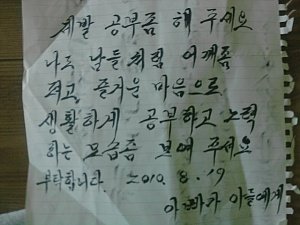 제발 공부좀 해 주세요
나도 남들처럼 어깨좀
펴고, 즐거운 마음으로
생활하게 공부하고 노력
하는 모습좀 보여 주세요
부탁합니다. 2010. 8. 19
아빠가 아들에게